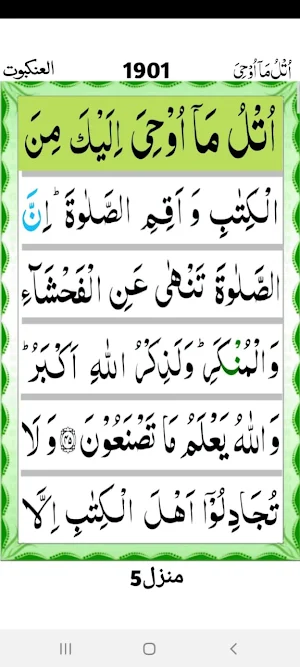 العنكبوت 1901 اُتْلُ مَاۤ اُوْحِیَ
اُتْلُ مَاۤ اُوْحِیَ اِلَیْكَ مِنَ
الْكِتٰبِ وَ اَقِمِ الصَّلٰوةَ ؕ اِنَّ
الصَّلٰوةَ تَنْهٰی عَنِ الْفَحْشَآءِ
وَ الْمُنْكَرِ ؕ وَ لَذِكْرُ اللّٰهِ اَكْبَرُ ؕ
وَ اللّٰهُ یَعْلَمُ مَا تَصْنَعُوْنَ ﴿۴۵﴾ وَ لَا
تُجَادِلُوْۤا اَهْلَ الْكِتٰبِ اِلَّا
منزل5